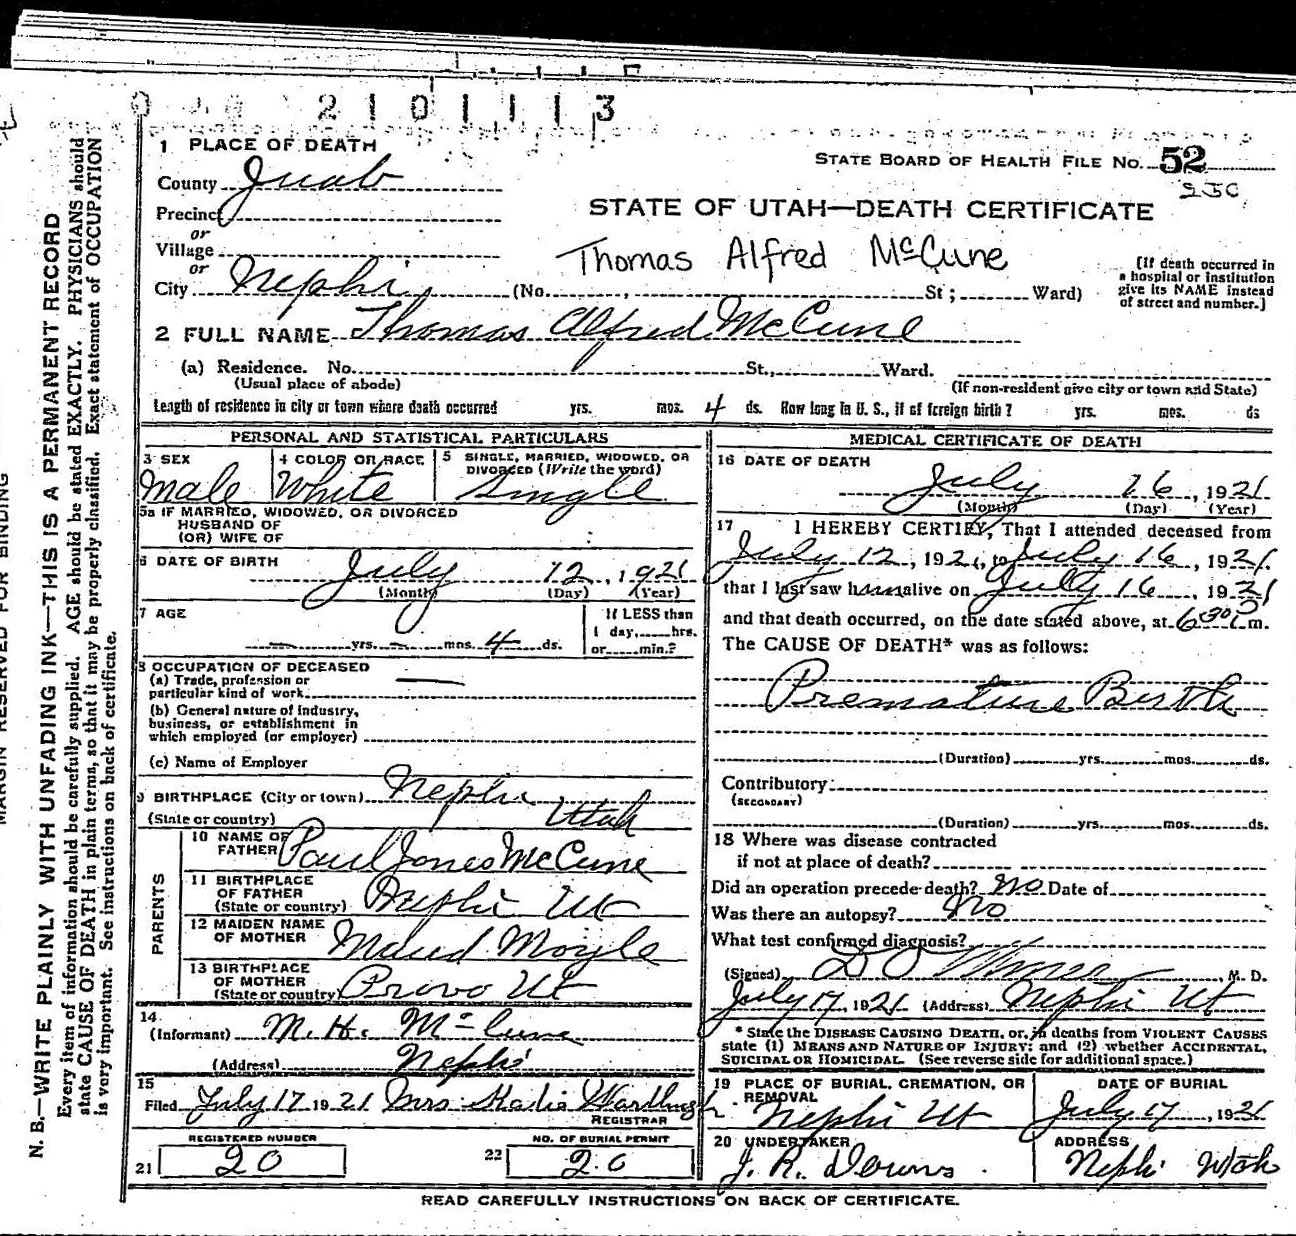 2 1 0 1 1 1 3
1 PLACE OF DEATH
STATE BOARD OF HEALTH FILE No. 52
County Juab
Precinct
STATE OF UTAH—DEATH CERTIFICATE
or
Village
Thomas Alfred McCune
or
City Nephi (No. , St ; Ward)
[If death occurred in
a hospital or institution
give its NAME instead
of street and number.]
2 FULL NAME Thomas Alfred McCune
(a) Residence. No. St., Ward.
(Usual place of abode)
(If non-resident give city or town and State)
Length of residence in city or town where death occurred yrs. mos. 4 ds. How long in U. S., if of foreign birth? yrs. mos. ds
PERSONAL AND STATISTICAL PARTICULARS
3 SEX
Male
4 COLOR OR RACE
White
5 SINGLE, MARRIED, WIDOWED, OR
DIVORCED (Write the word)
Single
5a IF MARRIED, WIDOWED, OR DIVORCED
HUSBAND OF
(OR) WIFE OF
6 DATE OF BIRTH
July 12, 1921
(Month) (Day) (Year)
7 AGE
— yrs. — mos. 4 ds.
If LESS than
1 day, hrs.
or min.?
8 OCCUPATION OF DECEASED
(a) Trade, profession or
particular kind of work —
(b) General nature of industry,
business, or establishment in
which employed (or employer)
(c) Name of Employer
9 BIRTHPLACE (City or town) Nephi
(State or country) Utah
PARENTS
10 NAME OF
FATHER Paul Jones McCune
11 BIRTHPLACE
OF FATHER
(State or country) Nephi Ut
12 MAIDEN NAME
OF MOTHER Maud Moyle
13 BIRTHPLACE
OF MOTHER
(State or country) Provo Ut
14
(Informant) M. H. McCune
(Address) Nephi
15
Filed July 17 1921 Mrs
REGISTRAR
REGISTERED NUMBER
21 20
NO. OF BURIAL PERMIT
22 20
MEDICAL CERTIFICATE OF DEATH
16 DATE OF DEATH
July 16, 1921
(Month) (Day) (Year)
17 I HEREBY CERTIFY, That I attended deceased from
July 12, 1921, to July 16, 1921.
that I last saw him alive on July 16, 1921
and that death occurred, on the date stated above, at 6 30 m.
The CAUSE OF DEATH* was as follows:
Premature Birth
(Duration) yrs. mos. ds.
Contributory:
(SECONDARY)
(Duration) yrs. mos. ds.
18 Where was disease contracted
if not at place of death?
Did an operation precede death? No Date of
Was there an autopsy? No
What test confirmed diagnosis?
(Signed) M. D.
July 17, 1921 (Address) Nephi Ut
* State the DISEASE CAUSING DEATH, or, in deaths from VIOLENT CAUSES
state (1) MEANS AND NATURE OF INJURY; and (2) whether ACCIDENTAL,
SUICIDAL OR HOMICIDAL. (See reverse side for additional space.)
19 PLACE OF BURIAL, CREMATION, OR
REMOVAL
Nephi Ut
DATE OF BURIAL
July 17, 1921
20 UNDERTAKER
J. R. Downs
ADDRESS
Nephi Utah
READ CAREFULLY INSTRUCTIONS ON BACK OF CERTIFICATE.
MARGIN RESERVED FOR BINDING
N. B.—WRITE PLAINLY WITH UNFADING INK—THIS IS A PERMANENT RECORD
Every item of information should be carefully supplied. AGE should be stated EXACTLY. PHYSICIANS should
state CAUSE OF DEATH in plain terms, so that it may be properly classified. Exact statement of OCCUPATION
is very important. See instructions on back of certificate.